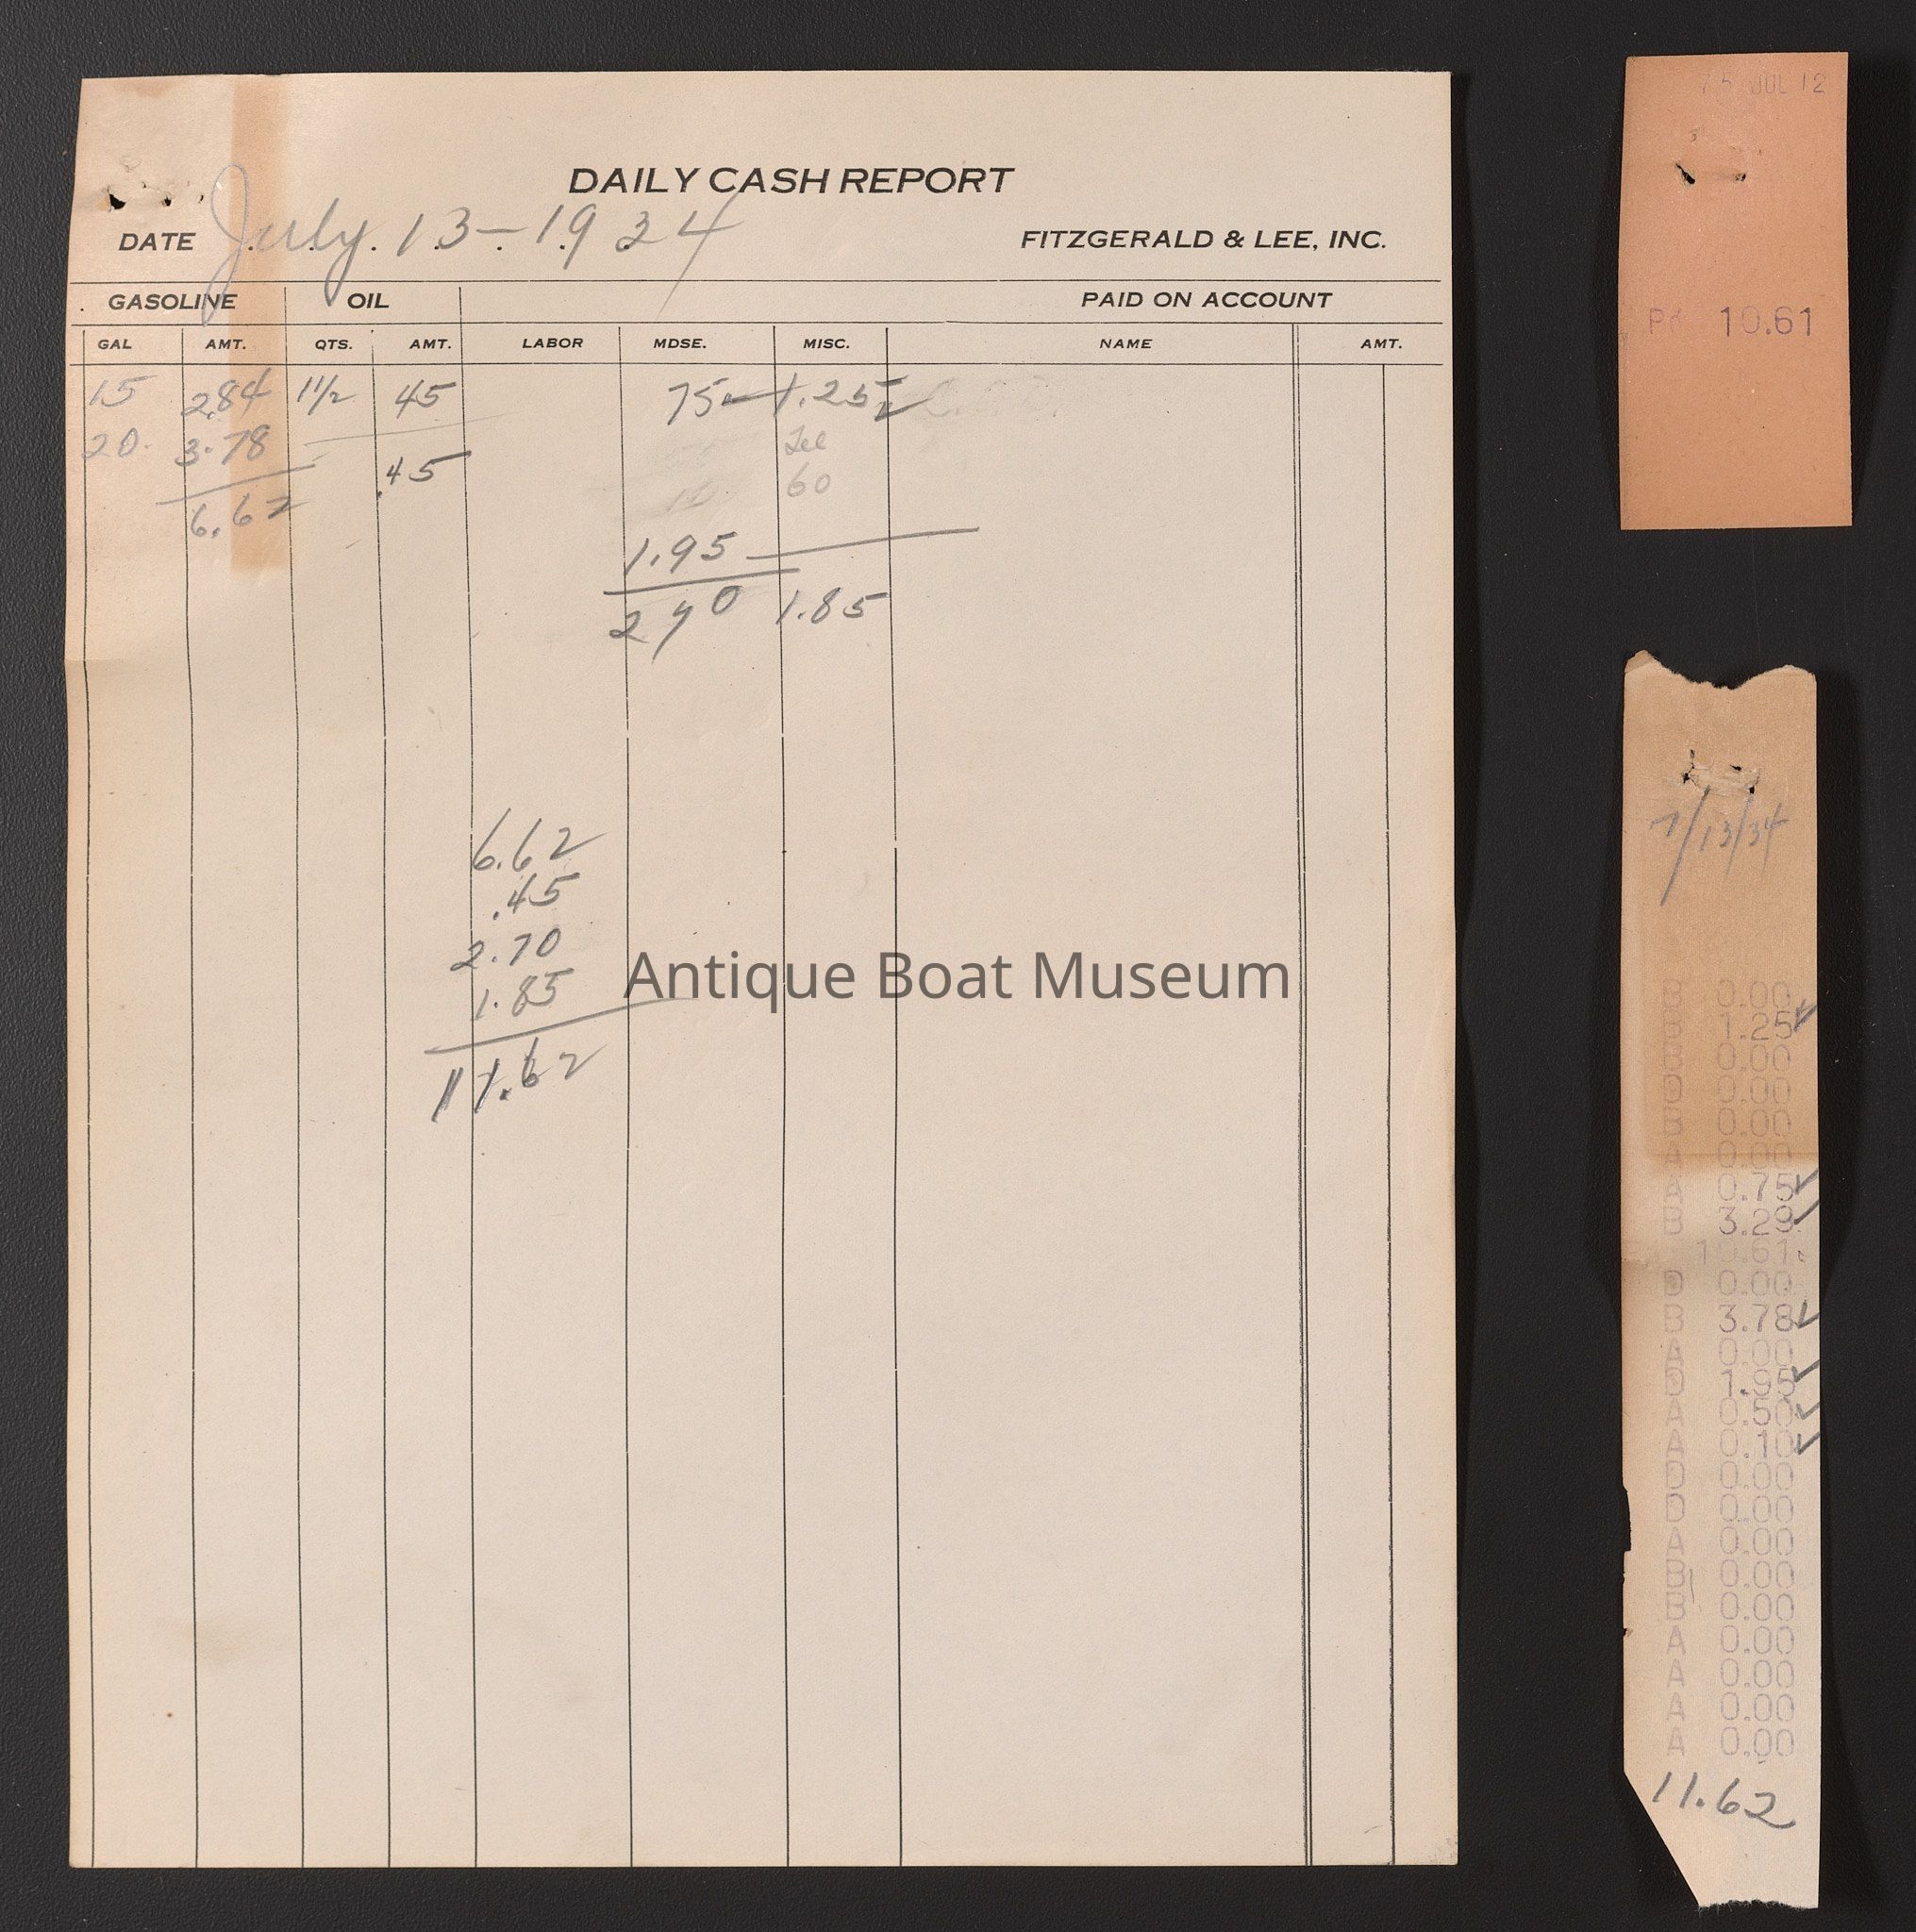 DAILY CASH REPORT
DATE July 13-1934
FITZGERALD & LEE, INC.
GASOLINE OIL PAID ON ACCOUNT
GAL AMT. QTS. AMT. LABOR MDSE. MISC. NAME AMT.
15 2.84 1 1/2 45 75 1.25
20. 3.78 Tel
.45 60
6.62
1.95
2 70 1.85
6.62
.45
2.70
1.85
11.62
Antique Boat Museum
JUL 12
Pd 10.61
7/13/34
B 0.00
B 1.25
B 0.00
D 0.00
B 0.00
A 0.00
A 0.75
B 3.29
10.61
D 0.00
B 3.78
A 0.00
D 1.95
A 0.50
A 0.10
D 0.00
D 0.00
A 0.00
B 0.00
B 0.00
A 0.00
A 0.00
A 0.00
A 0.00
11.62